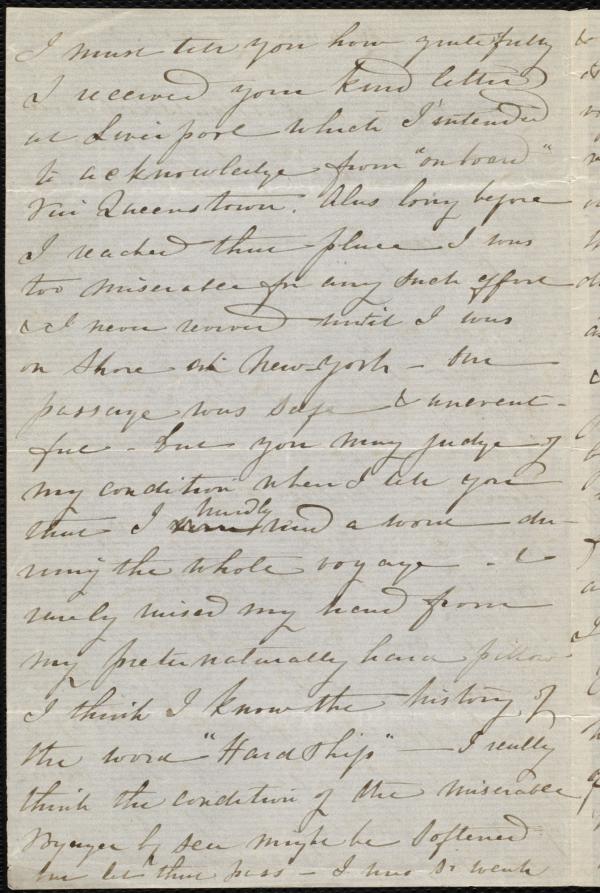 I must tell you how gratefully
I received your kind letter
at Liverpool which I intended
to acknowledge from "on board"
Via Queenstown. Alas long before
I reached that place I was
too miserable for any such effort
& I never revived until I was
on shore at New York - Our
passage was safe & unevent-
ful - but you may judge of
my condition when I tell you
that I hardly read a word du-
ring the whole voyage - &
rarely raised my head from
my preternaturally hard pillow
I think I know the history of
the word "Hardship" — I really
think the condition of the miserable
voyager by sea might be softened
but let that pass - I was so weak